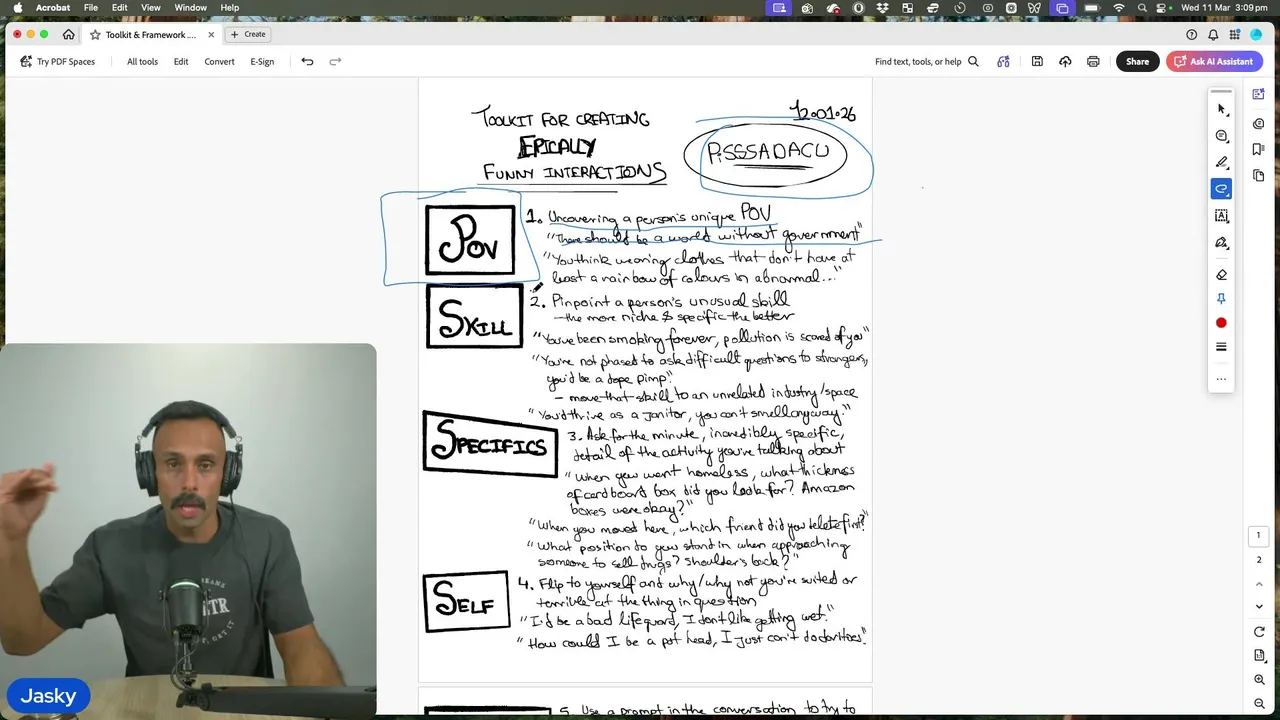 Acrobat File Edit View Window Help
Wed 11 Mar 3:09 pm
Toolkit & Framework ....
Create
Try PDF Spaces All tools Edit Convert E-Sign
Find text, tools, or help
Share
Ask AI Assistant
TOOLKIT FOR CREATING
EPICALLY
FUNNY INTERACTIONS
12.01.26
P.SSSADACU
POV
1. Uncovering a person's unique POV
"There should be a world without government"
"You think wearing clothes that don't have at
least a rainbow of colours in abnormal..."
SKILL
2. Pinpoint a person's unusual skill
- the more niche & specific the better
"You've been smoking forever, pollution is scared of you"
"You're not phased to ask difficult questions to strangers,
you'd be a dope pimp."
- move that skill to an unrelated industry/space
"You'd thrive as a janitor, you can't smell anyway."
SPECIFICS
3. Ask for the minute, incredibly specific,
detail of the activity you're talking about
"When you went homeless, what thickness
of cardboard box did you look for? Amazon
boxes were okay?"
"When you moved here, which friend did you delete first?"
"What position do you stand in when approaching
someone to sell drugs? Shoulders back?"
SELF
4. Flip to yourself and why/why not you're suited or
terrible at the thing in question
"I'd be a bad lifeguard, I don't like getting wet."
"How could I be a pot head, I just can't do dorities."
5. Use a prompt in the conversation to try to
1
2
Jasky